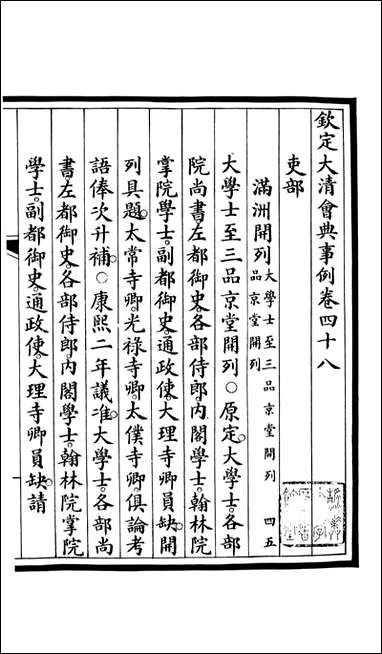 欽定大清會典事例卷四十八
吏部
滿洲開列大學士至三品京堂開列 四五品京堂開列
大學士至三品京堂開列○原定大學士各部
院尚書左都御史各部侍郎內閣學士翰林院
掌院學士副都御史通政使大理寺卿員缺開
列具題太常寺卿光祿寺卿太僕寺卿俱論考
語俸次升補○康熙二年議准大學士各部尚
書左都御史各部侍郎內閣學士翰林院掌院
學士副都御史通政使大理寺卿員缺請